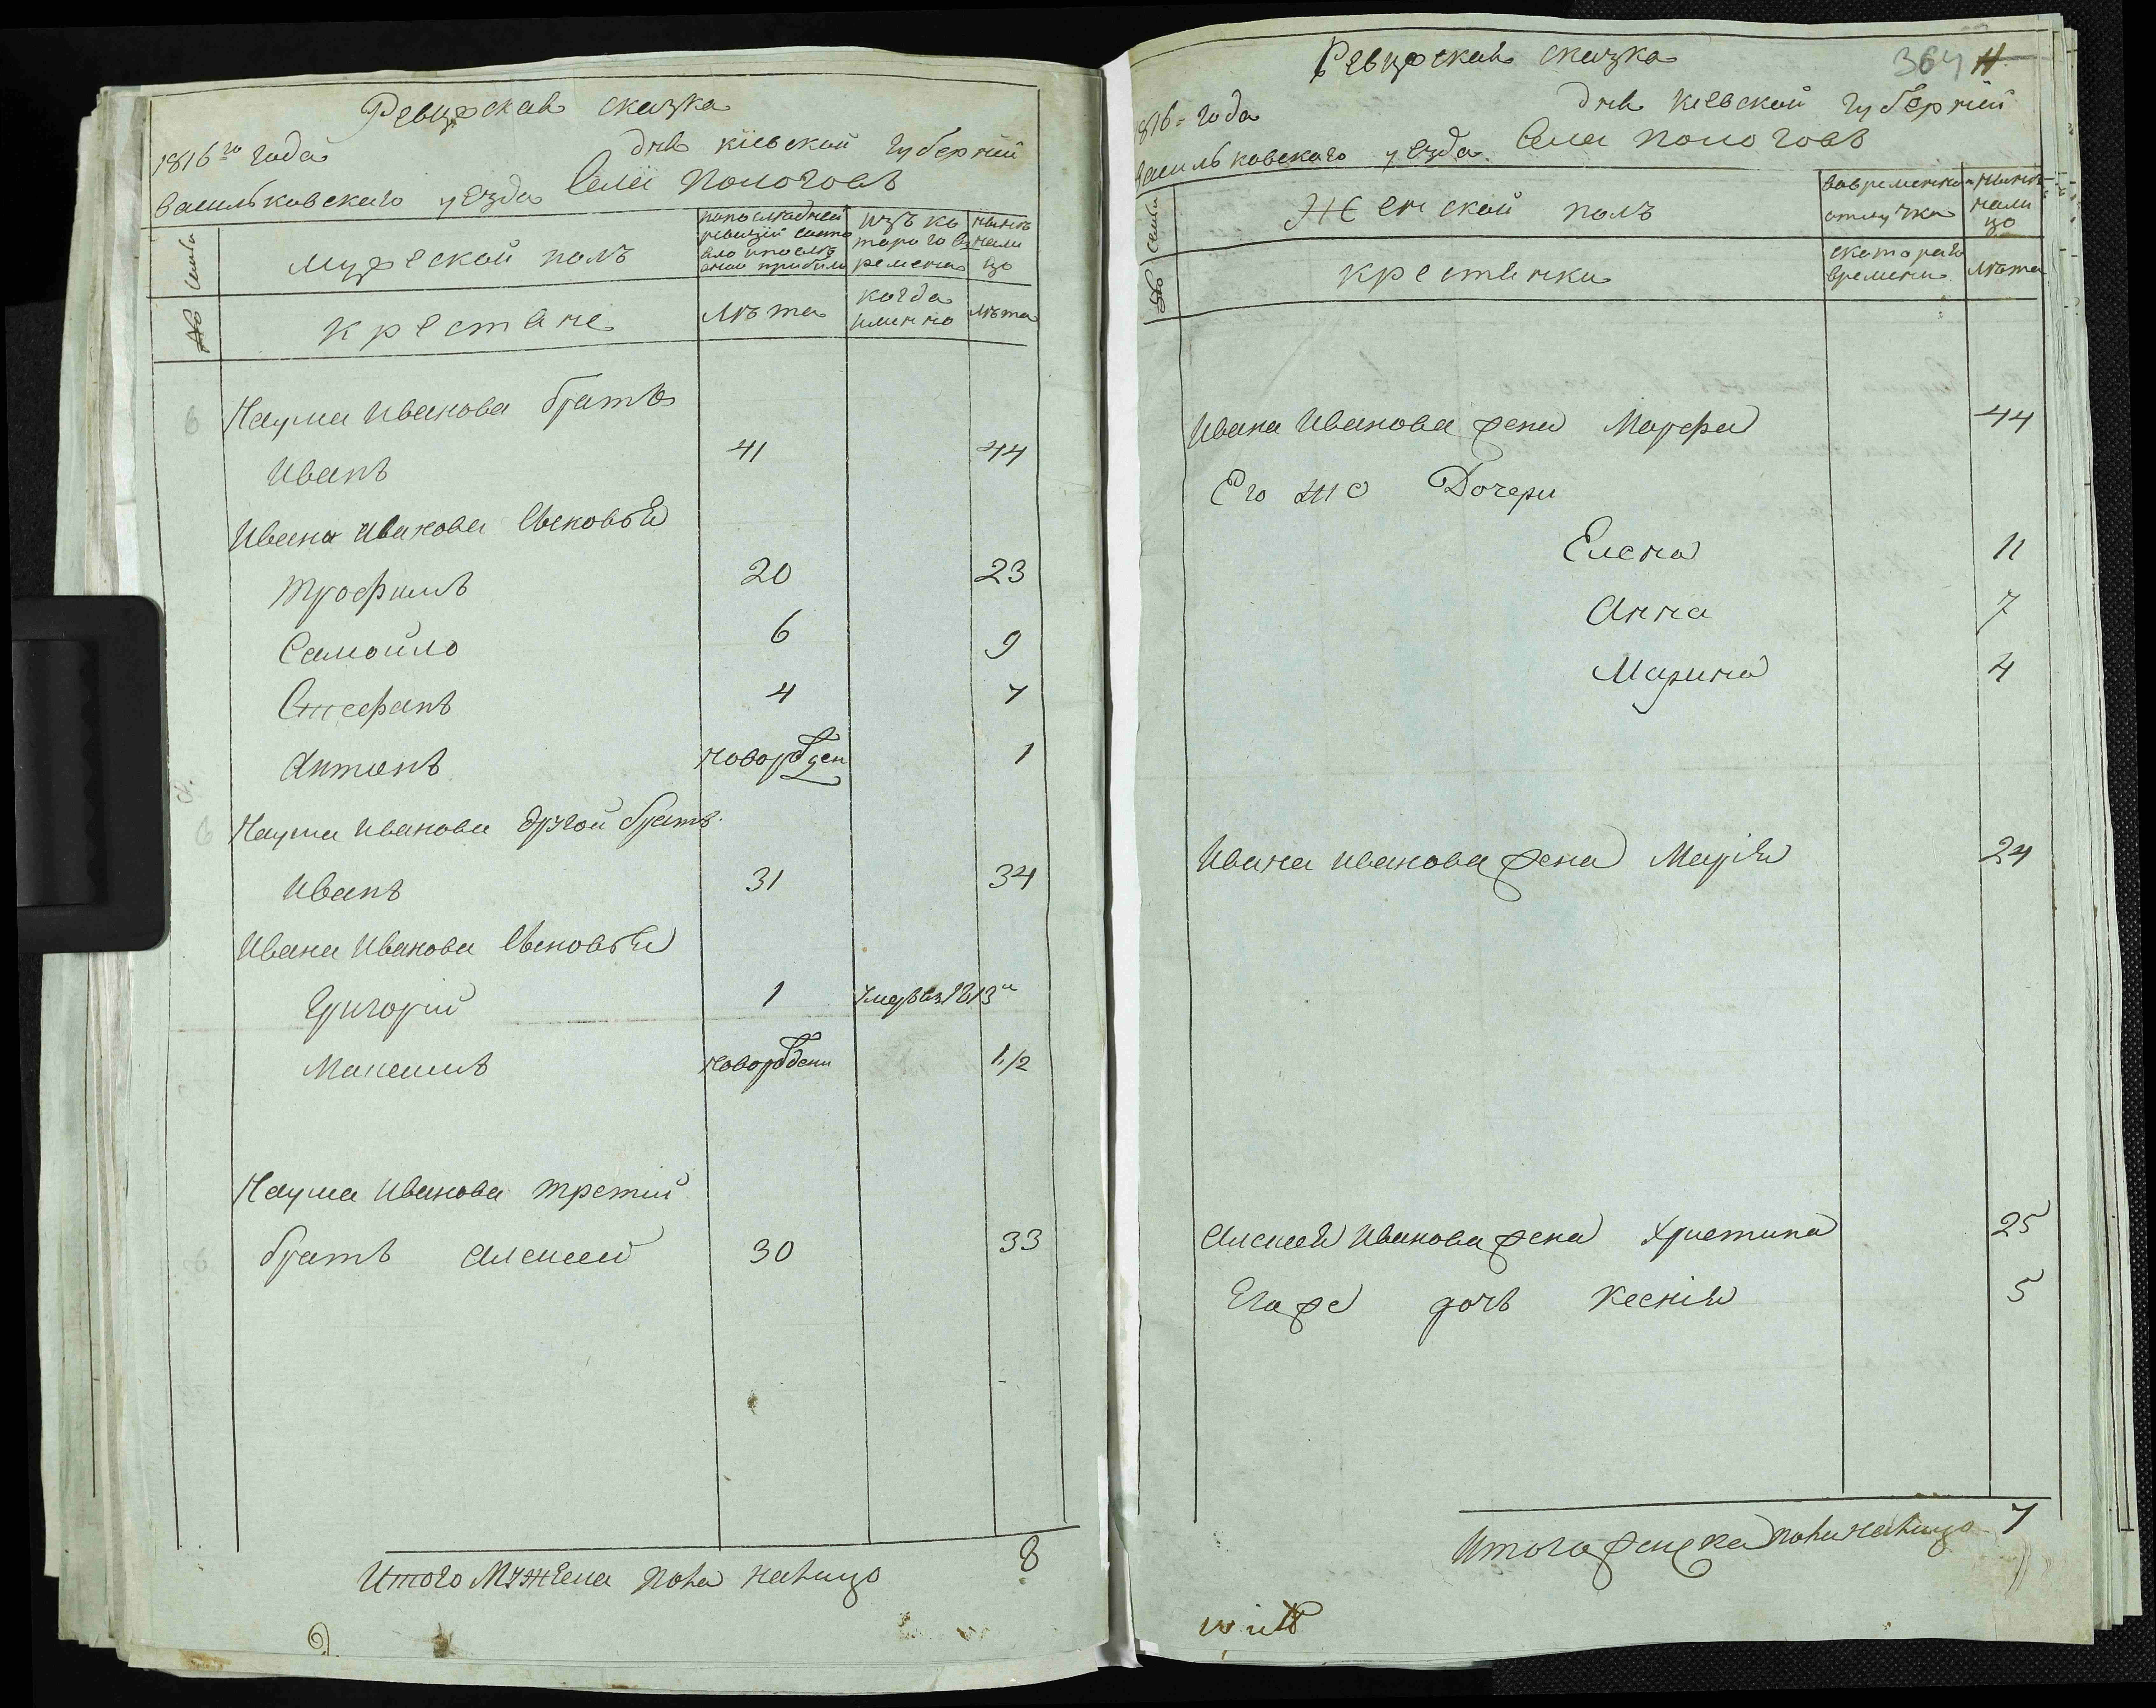 Ревизская сказка
1816го года
дня кіевской губерній
васильковского уезда Села Пологовъ
№ Семьи
мужеской полъ
попоследней ревизіи состояло ипослѣ оной прибыли
изъ которого времени
нынѣ налицо
крестяне
лѣта
когда именно
лѣта
Наума Иванова братъ
Иванъ 41 44
Ивана Иванова Сыновья
Трофимъ 20 23
Самойло 6 9
Стефанъ 4 7
Антонъ новорожден 1
Наума Иванова другой братъ
Иванъ 31 34
Ивана Иванова Сыновья
Григорий 1 умръ въ 1813
Максимъ новорожденн 1 1/2
Наума Иванова третий
братъ Алексей 30 33
Итого Мужеска пола налицо 8
Ревизская сказка
364 11
1816= года
дня кіевской губерній
васильковского уезда Села пологовъ
№ Семьи
Женской полъ
вовременной отлучки
нынѣ налицо
крестянки
скоторого времени
лѣта
Ивана Иванова жена Марфа 44
Его же Дочери
Елена 11
Анна 7
Марина 4
Ивана Иванова жена Марія 24
Алексея Иванова жена Христина 25
Егоже дочь Ксенія 5
Итого женска пола налицо 7